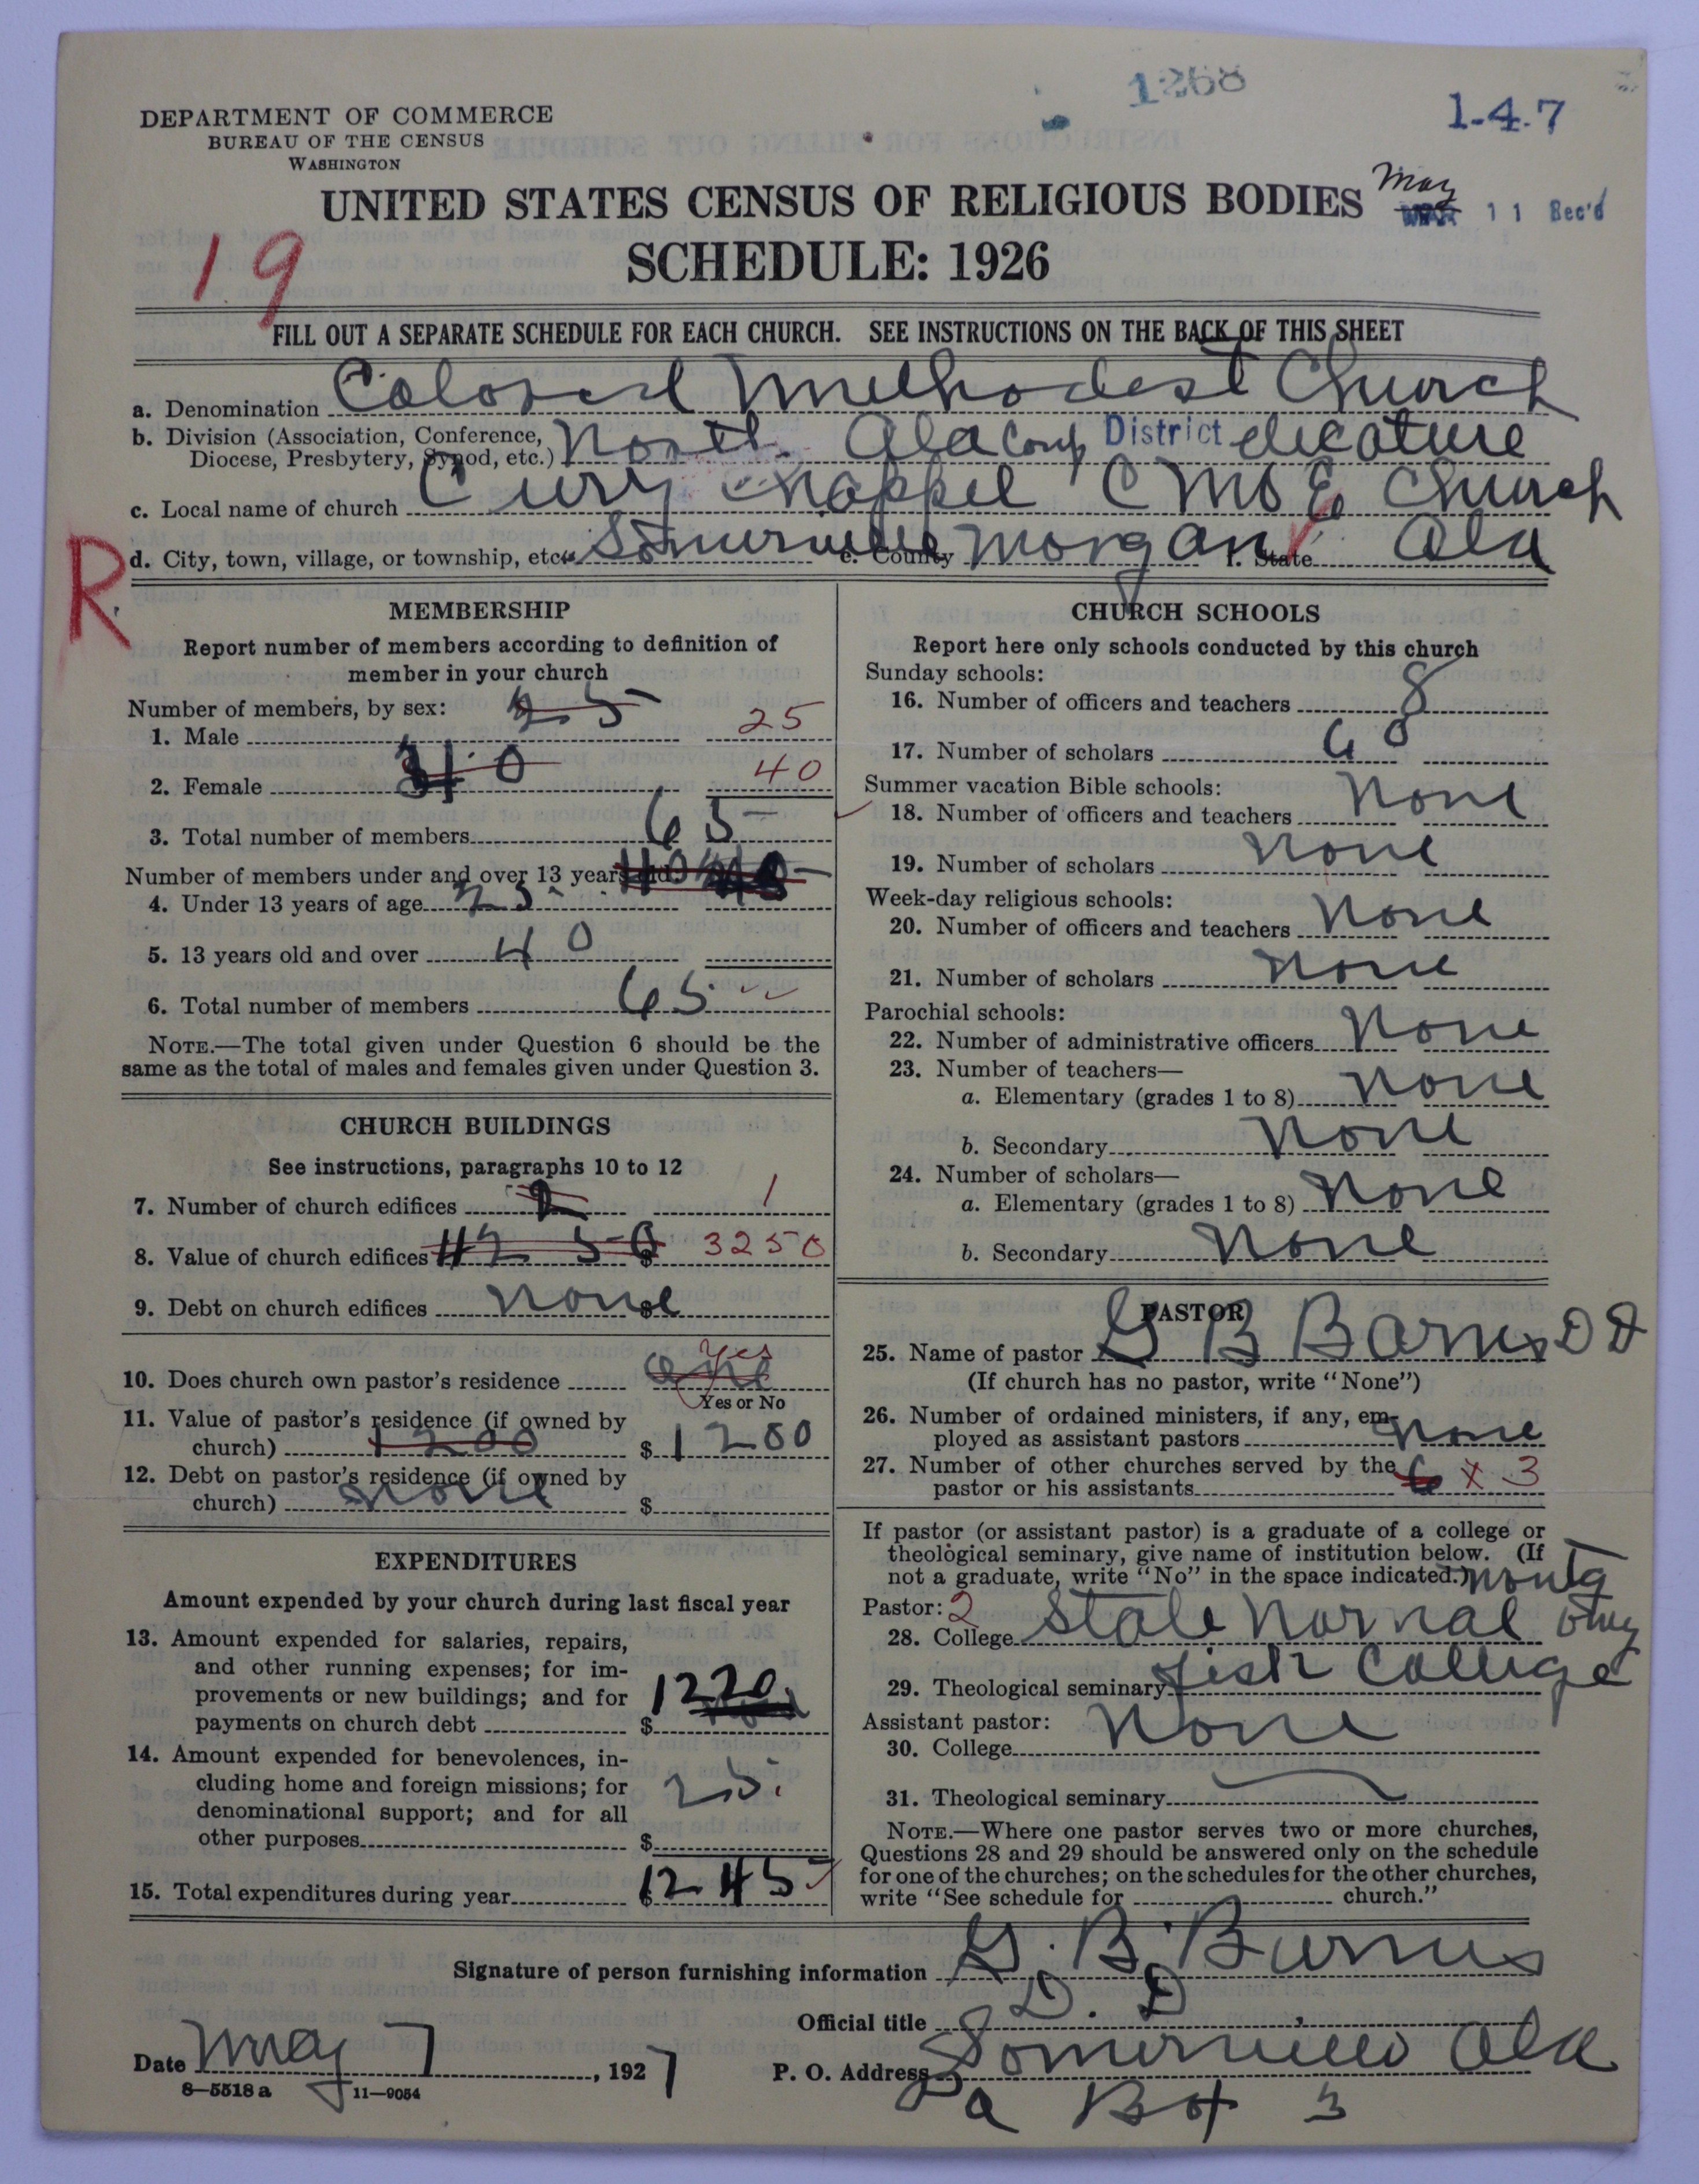 1268
1-4-7
DEPARTMENT OF COMMERCE
BUREAU OF THE CENSUS
WASHINGTON
UNITED STATES CENSUS OF RELIGIOUS BODIES
May
MAR 11 Rec'd
SCHEDULE: 1926
19
FILL OUT A SEPARATE SCHEDULE FOR EACH CHURCH. SEE INSTRUCTIONS ON THE BACK OF THIS SHEET
a. Denomination Colored Methodest Church
b. Division (Association, Conference, Diocese, Presbytery, Synod, etc.) North Ala Conf District decature
c. Local name of church Cury Chappel C M E Church
d. City, town, village, or township, etc. Somerville e. County Morgan f. State Ala
R
MEMBERSHIP
Report number of members according to definition of
member in your church
Number of members, by sex:
1. Male 25 25
2. Female 40 40
3. Total number of members 65
Number of members under and over 13 years old:
4. Under 13 years of age 25
5. 13 years old and over 40
6. Total number of members 65
NOTE.—The total given under Question 6 should be the
same as the total of males and females given under Question 3.
CHURCH BUILDINGS
See instructions, paragraphs 10 to 12
7. Number of church edifices 2 1
8. Value of church edifices $ 3250
9. Debt on church edifices None $
10. Does church own pastor's residence one Yes
Yes or No
11. Value of pastor's residence (if owned by
church) 1200 $ 1200
12. Debt on pastor's residence (if owned by
church) None $
EXPENDITURES
Amount expended by your church during last fiscal year
13. Amount expended for salaries, repairs,
and other running expenses; for im-
provements or new buildings; and for
payments on church debt $ 1220
14. Amount expended for benevolences, in-
cluding home and foreign missions; for
denominational support; and for all
other purposes $ 25
15. Total expenditures during year $ 1245
CHURCH SCHOOLS
Report here only schools conducted by this church
Sunday schools:
16. Number of officers and teachers 8
17. Number of scholars 60
Summer vacation Bible schools:
18. Number of officers and teachers None
19. Number of scholars None
Week-day religious schools:
20. Number of officers and teachers None
21. Number of scholars None
Parochial schools:
22. Number of administrative officers None
23. Number of teachers—
a. Elementary (grades 1 to 8) None
b. Secondary None
24. Number of scholars—
a. Elementary (grades 1 to 8) None
b. Secondary None
PASTOR
25. Name of pastor G B Barnes D D
(If church has no pastor, write "None")
26. Number of ordained ministers, if any, em-
ployed as assistant pastors None
27. Number of other churches served by the
pastor or his assistants 6 x 3
If pastor (or assistant pastor) is a graduate of a college or
theological seminary, give name of institution below. (If
not a graduate, write "No" in the space indicated.)
Pastor: 2
28. College State Normal Montg omy
29. Theological seminary Fisk College
Assistant pastor:
30. College None
31. Theological seminary
NOTE.—Where one pastor serves two or more churches,
Questions 28 and 29 should be answered only on the schedule
for one of the churches; on the schedules for the other churches,
write "See schedule for church."
Signature of person furnishing information G. B. Burnes
Official title D. D
Date May 7, 1927 P. O. Address Somerville Ala
8—5518 a 11—9054
Box 3